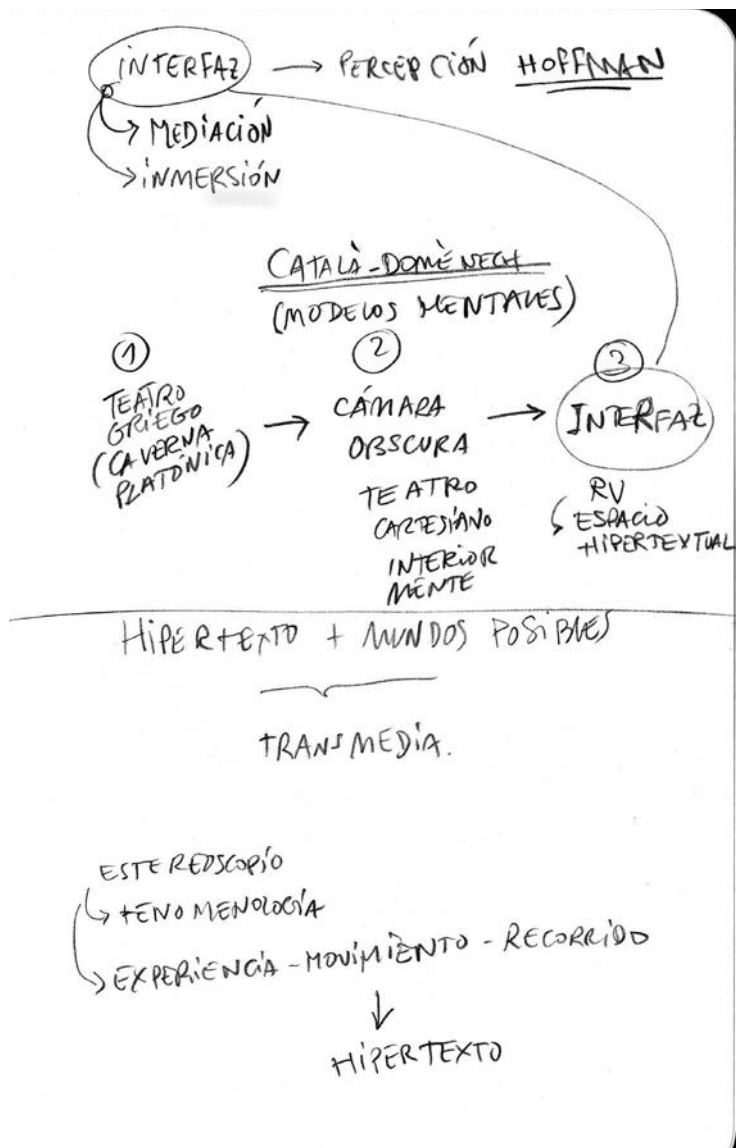 INTERFAZ → PERCEPCIÓN HOFFMAN
→ MEDIACIÓN
→ INMERSIÓN
CATALÀ-DOMÈNECH
(MODELOS MENTALES)
①
TEATRO
GRIEGO
(CAVERNA
PLATÓNICA)
→
②
CÁMARA
OBSCURA
TEATRO
CARTESIANO
INTERIOR
MENTE
→
③
INTERFAZ
RV
ESPACIO
HIPERTEXTUAL
HIPERTEXTO + MUNDOS POSIBLES
TRANSMEDIA.
ESTEREOSCOPIO
→ FENOMENOLOGÍA
→ EXPERIENCIA - MOVIMIENTO - RECORRIDO
↓
HIPERTEXTO